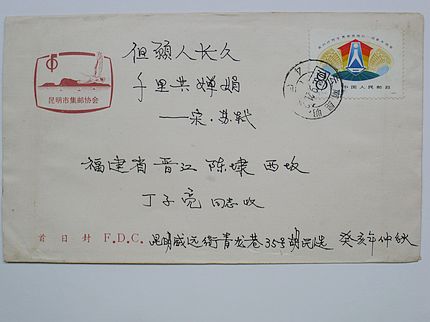 但願人长久
千里共婵娟
——宋.苏轼
中国人民邮政
昆明市集邮协会
福建省晋江陈埭西坂
丁子亮同志收
首日封 F.D.C. 昆明威远街青龙巷35号胡 癸亥年仲秋